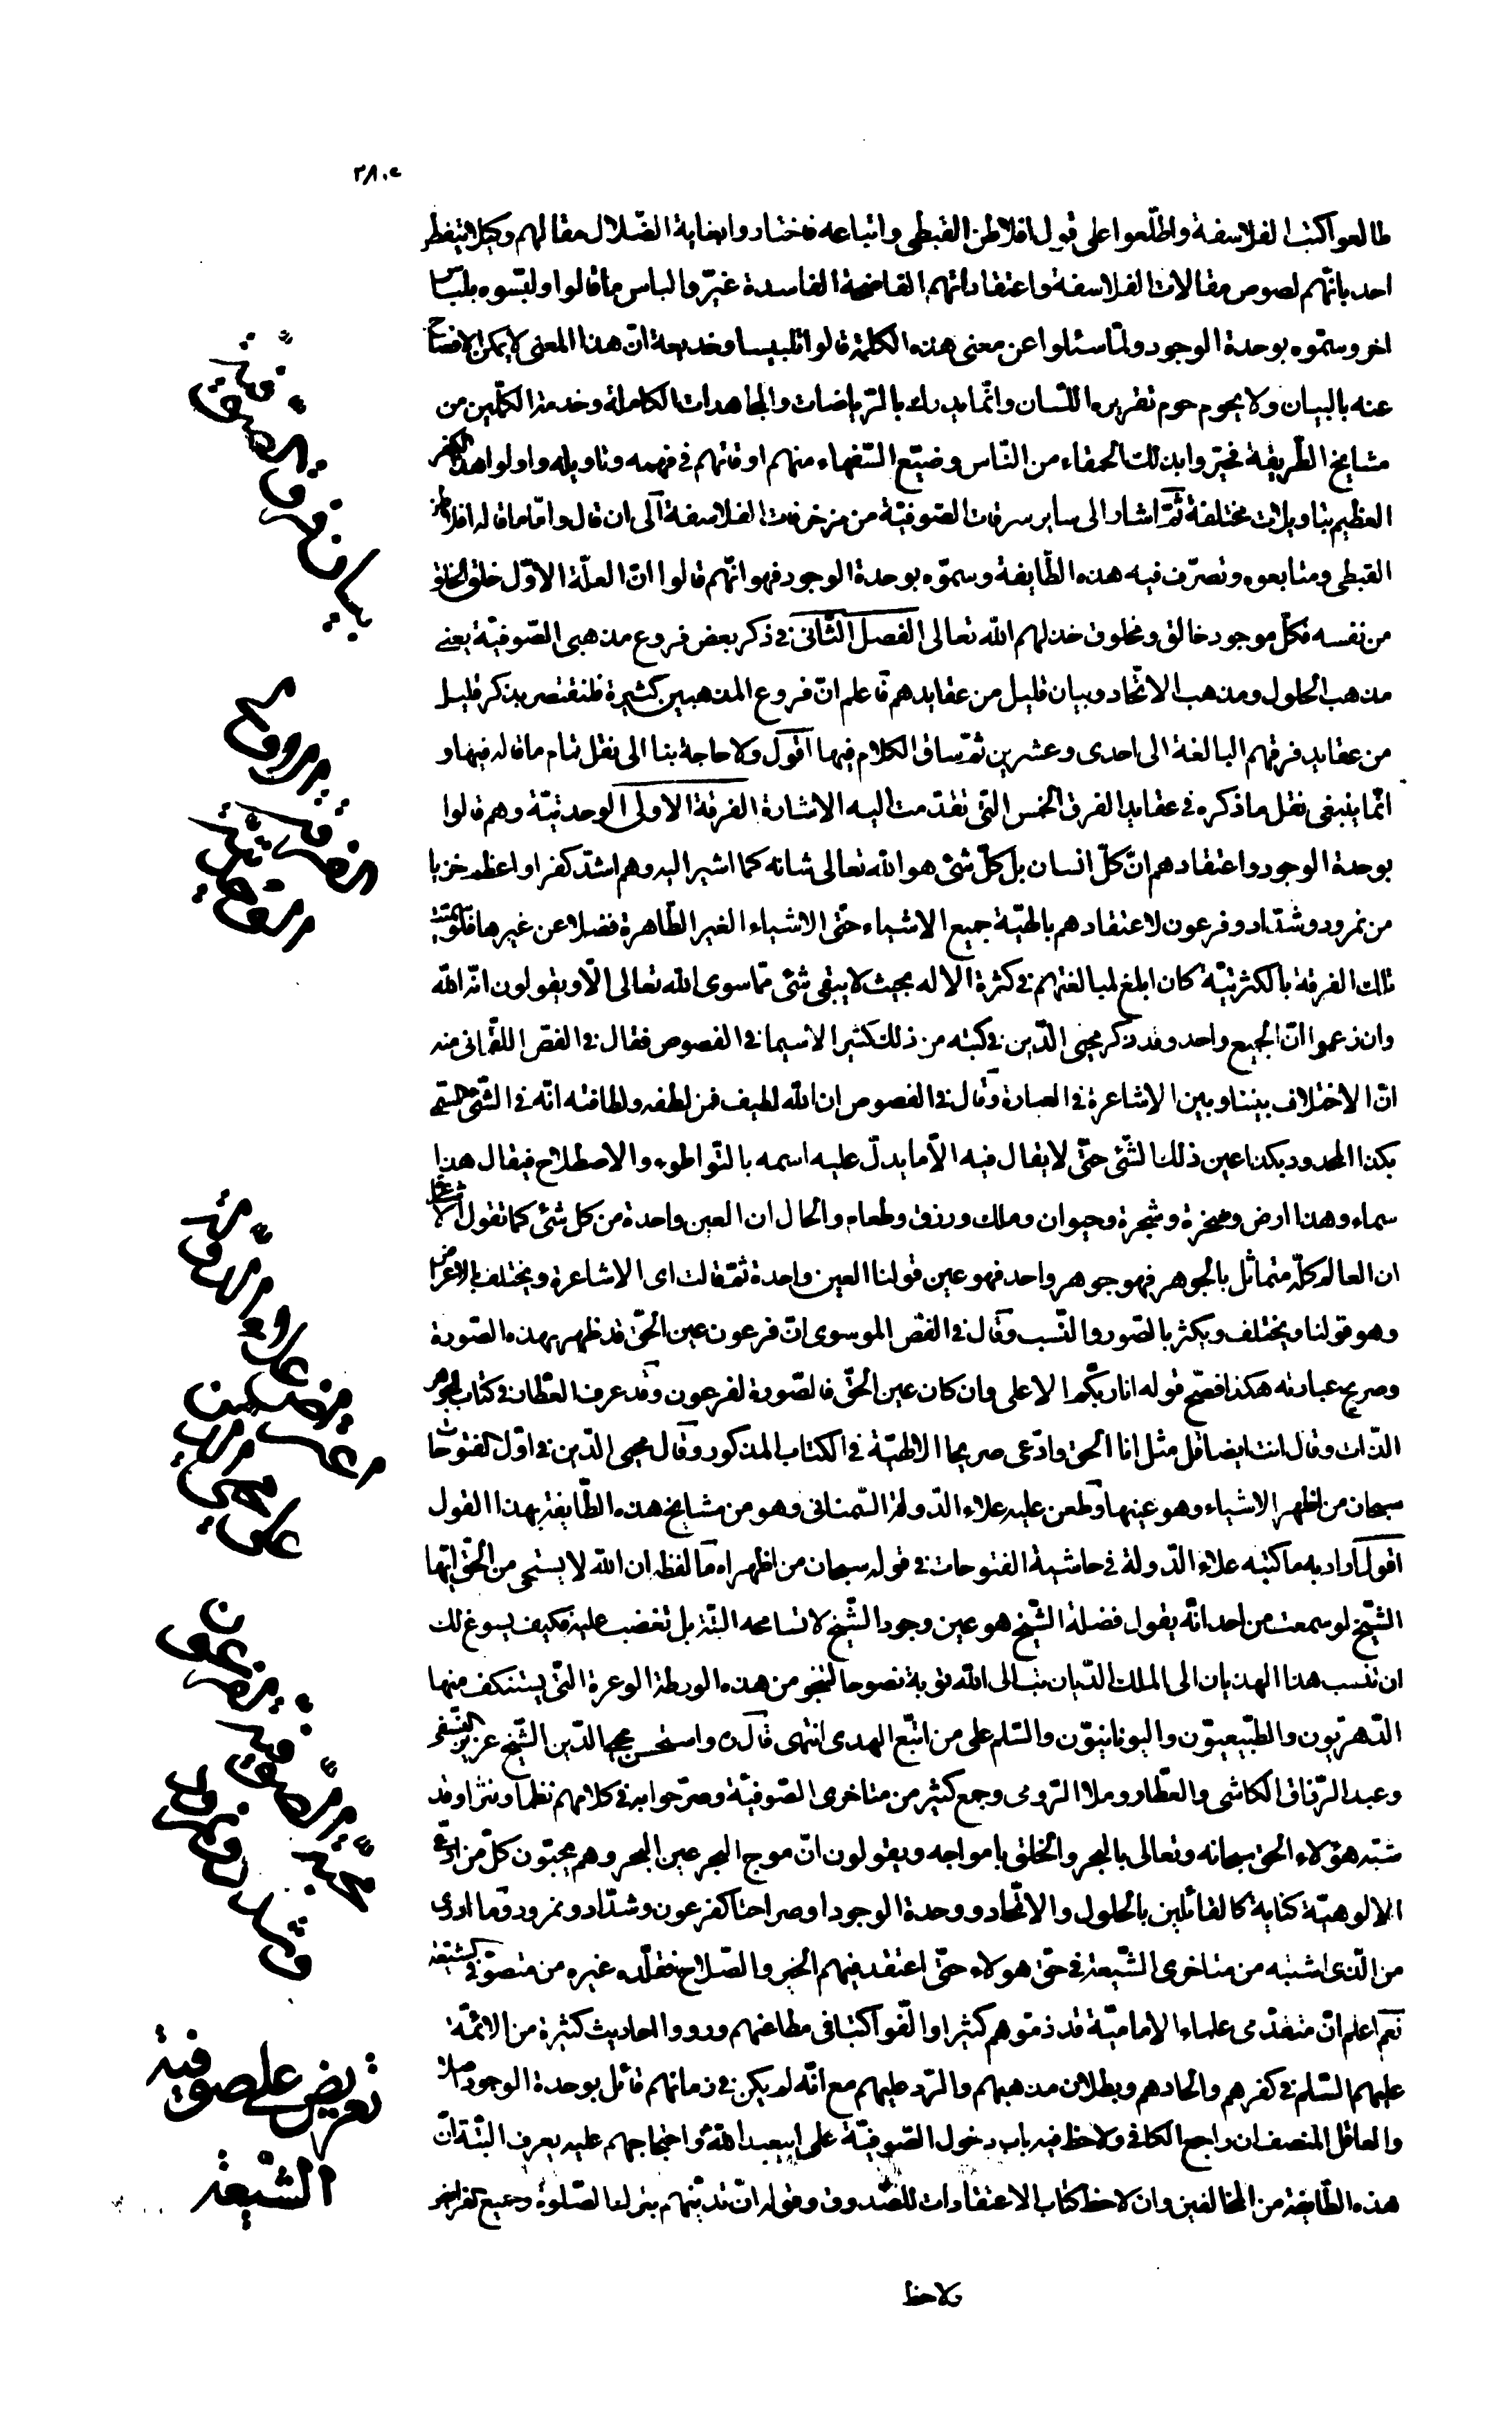 ٢٨٠
طالعوا كتب الفلاسفة واطّلعوا على قول افلاطن القبطى واتباعه فاختاروا بغاية الضّلال مقالهم وكيلا يتفطّن
احد بانّهم لصوص مقالات الفلاسفة واعتقاداتهم الفاضحة الفاسدة غيّروا لباس ما قالوا ولبّسوه بلباس
اخر وسمّوه بوحدة الوجود ولمّا سئلوا عن معنى هذه الكلمة قالوا تلبيسا وخديعة انّ هذا المعنى لا يمكن الافصاح
عنه بالبيان ولا يحوم حوم تقريره اللّسان وانّما يدرك بالرّياضات والمجاهدات الكاملة وخدمة الكمّلين من
مشايخ الطّريقة فحيّروا بذلك الحمقاء من النّاس وضيّع السّفهاء منهم اوقاتهم فى فهمه وتاويله واولوا هذا الكفر
العظيم بتاويلات مختلفة ثمّ اشار الى ساير سرقات الصّوفيّة من مزخرفات الفلاسفة الى ان قال وامّا ما قاله افلاطن
القبطى ومتابعوه وتصرّف فيه هذه الطّايفة وسمّوه بوحدة الوجود فهو انّهم قالوا انّ العلّة الاوّل خلق الخلق
من نفسه فكلّ موجود خالق ومخلوق خذلهم الله تعالى الفصل الثّانى فى ذكر بعض فروع مذهبى الصّوفيّة يعنى
مذهب الحلول ومذهب الاتّحاد وبيان قليل من عقايدهم فاعلم انّ فروع المذهبين كثيرة فلنقتصر بذكر قليل
من عقايد فرقهم البالغة الى احدى وعشرين ثمّ ساق الكلام فيها اقول ولا حاجة بنا الى نقل تمام ما قاله فيها و
انّما ينبغى نقل ما ذكره فى عقايد الفرق الخمس التى تقدّمت اليه الاشارة الفرقة الاولى الوحدتيّة وهم قالوا
بوحدة الوجود واعتقادهم انّ كلّ انسان بل كلّ شئ هو الله تعالى شانه كما اشير اليه وهم اشدّ كفرا واعظم خزيا
من نمرود وشدّاد وفرعون لاعتقادهم بالهيّة جميع الاشياء حتّى الاشياء الغير الطّاهرة فضلا عن غيرها فلو سميّت
تلك الفرقة بالكثرتيّة كان ابلغ لمبالغتهم فى كثرة الاله بحيث لا يبقى شئ ممّا سوى الله تعالى الّا ويقولون انّه الله
وان زعموا انّ الجميع واحد وقد ذكر محيى الدّين فى كتبه من ذلك كثيرا لاسيما فى الفصوص فقال فى الفصّ اللقمانى منه
انّ الاختلاف بيننا وبين الاشاعرة فى العبارة وقال فى الفصوص ان الله لطيف فمن لطفه ولطافته انّه فى الشّئ المسمّى
بكذا المحدود بكذا عين ذلك الشّئ حتّى لا يقال فيه الّا ما يدلّ عليه اسمه بالتّواطوء والاصطلاح فيقال هذا
سماء وهذا ارض وصخرة وشجرة وحيوان وملك ورزق وطعام والحال ان العين واحدة من كل شئ كما تقول الاشاعرة
ان العالم كلّه متماثل بالجوهر فهو جوهر واحد فهو عين قولنا العين واحدة ثمّ قالت اى الاشاعرة ويختلف بالاعراض
وهو قولنا ويختلف ويكثر بالصّور والنّسب وقال فى الفصّ الموسوى انّ فرعون عين الحقّ قد ظهر بهذه الصّورة
وصريح عبارته هكذا فصحّ قوله انا ربّكم الاعلى وان كان عين الحقّ فالصّورة لفرعون وقد عرف العطّار فى كتاب جوهر
الذّات وقال انت ايضا قل مثل انا الحق وادّعى صريحا الالهيّة فى الكتاب المذكور وقال محيى الدّين فى اوّل الفتوحات
سبحان من اظهر الاشياء وهو عينها وطعن عليه علاء الدّولة السّمنانى وهو من مشايخ هذه الطّايفة بهذا القول
اقول اراد به ما كتبه علاء الدّولة فى حاشية الفتوحات فى قوله سبحان من اظهر اه ما لفظه ان الله لا يستحى من الحقّ ايّها
الشّيخ لو سمعت من احد انّه يقول فضلة الشّيخ هو عين وجود الشّيخ لا تسامحه البتّة بل تغضب عليه فكيف يسوغ لك
ان تنسب هذا الهذيان الى الملك الدّيان تب الى الله توبة نصوحا لتنجو من هذه الورطة الوعرة التّى يستنكف منها
الدّهريّون والطّبيعيّون واليونانيّون والسّلم على من اتّبع الهدى انتهى قال ره واستحسن محيى الدّين الشّيخ عزيز النّسفى
وعبد الرّزاق الكاشى والعطّار وملا الرّومى وجمع كثير من متاخرى الصّوفيّة وصرّحوا به فى كلامهم نظما ونثرا وقد
شبّه هؤلاء الحق سبحانه وتعالى بالبحر والخلق بامواجه ويقولون انّ موج البحر عين البحر وهم يحبّون كلّ من ادّعى
الالوهيّة كناية كالقائلين بالحلول والاتّحاد ووحدة الوجود او صراحتا كفرعون وشدّاد ونمرود وما ادرى
من الّذى اشتبه من متاخرى الشّيعة فى حقّ هولاء حتّى اعتقد فيهم الخير والصّلاح فقلّده غيره من متصوّفى الشّيعة
نعم اعلم انّ متقدّمى علماء الاماميّة قد ذمّوهم كثيرا والّفوا كتبا فى مطاعنهم ورووا احاديث كثيرة من الائمّة
عليهم السّلم فى كفرهم والحادهم وبطلان مذهبهم والرّد عليهم مع انّه لم يكن فى زمانهم قائل بوحدة الوجود اصلا
والعاقل المنصف ان راجع الكافى ولاحظ فيه باب دخول الصّوفيّة على ابيعبد الله واحتجاجهم عليه يعرف البتّة انّ
هذه الطّايفة من المخالفين وان لاحظ كتاب الاعتقادات للصّدوق وقوله انّ تديّنهم بترك الصّلوة وجميع الفرايض
ولاحظ
بيان فرق الصّوفيّة
الفرقة الوحدتيّة
تعريض على صوفيّة
الشّيعة